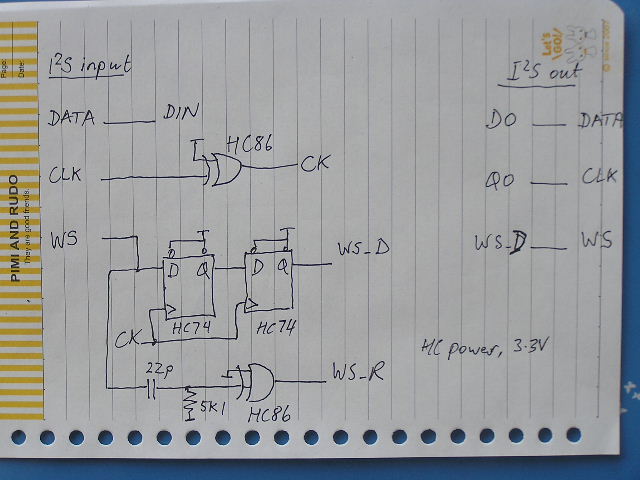 Page:
Date:
PIMI AND RUDO
They are good friends.
Let's GO!
I²S input
I²S out
DATA DIN
DO DATA
HC86
CLK CK
QO CLK
WS
WS_D
WS_D WS
D Q D Q
HC74 HC74
CK
HC power, 3.3V
22p
WS_R
5K1
HC86